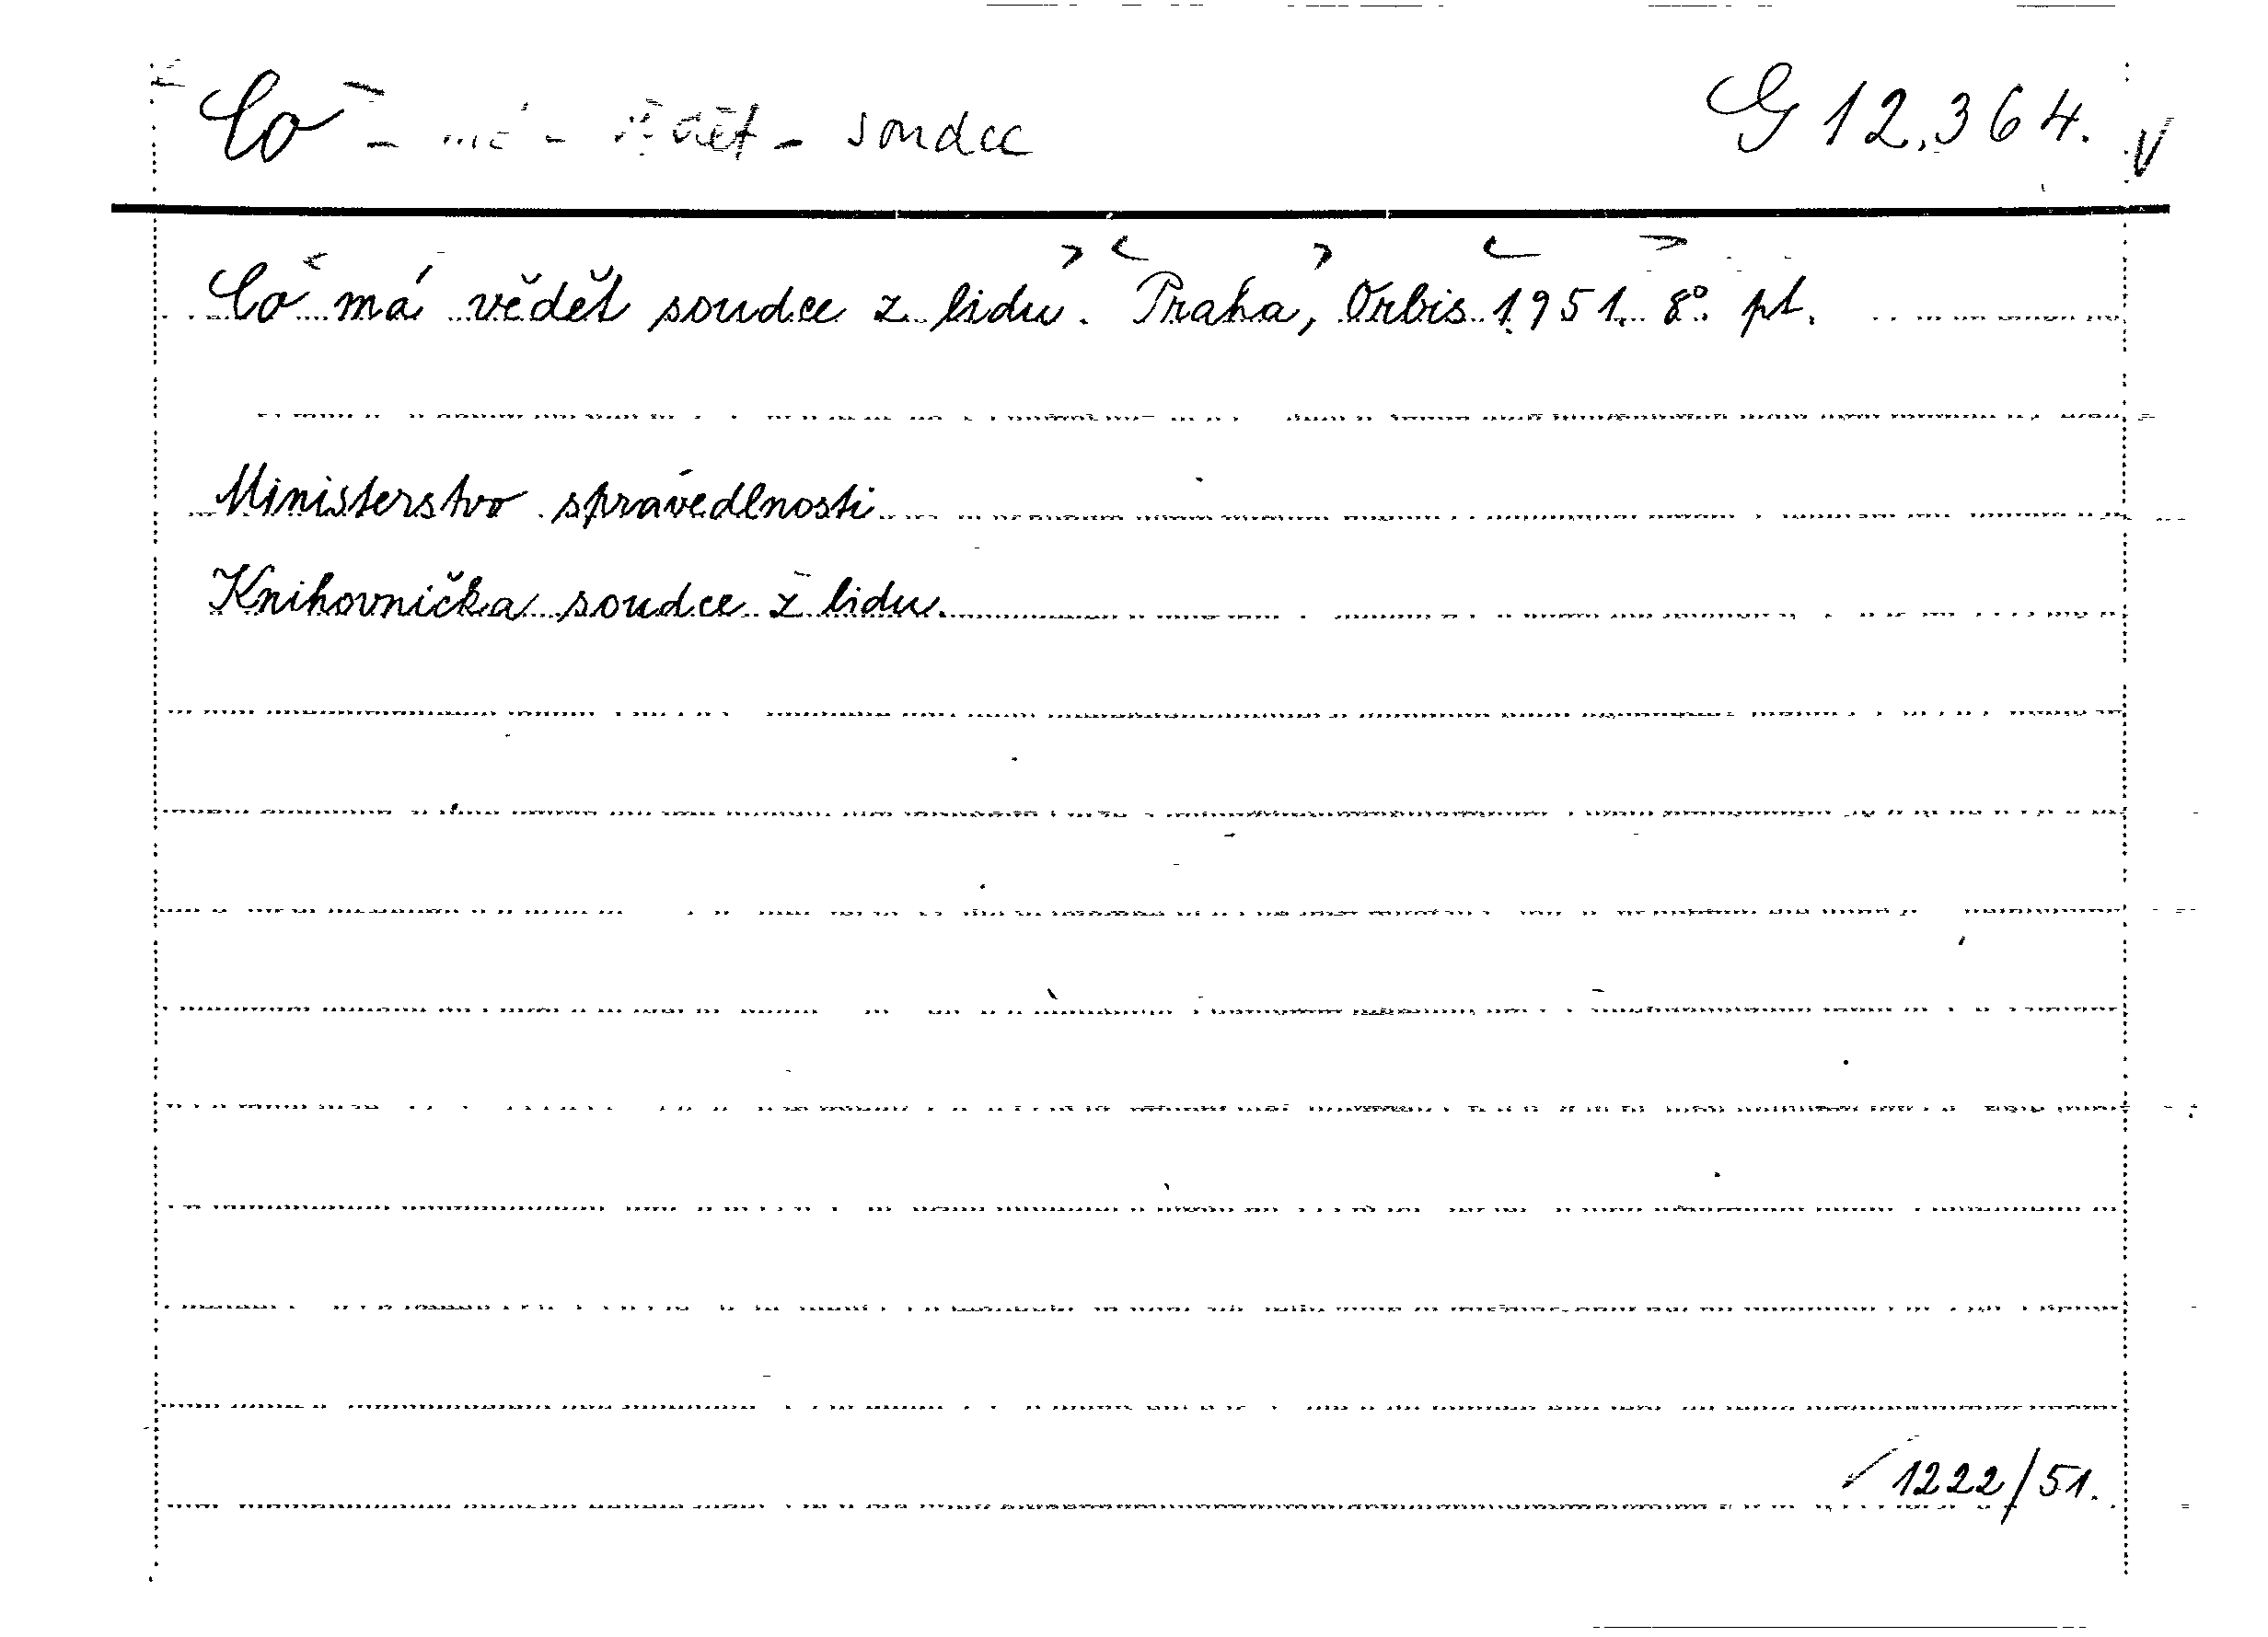 Co - má - vědět - soudce G 12.364. V
Co má vědět soudce z lidu. Praha, Orbis 1951. 8° pl.
Ministerstvo spravedlnosti
Knihovnička soudce z lidu.
1222/51.